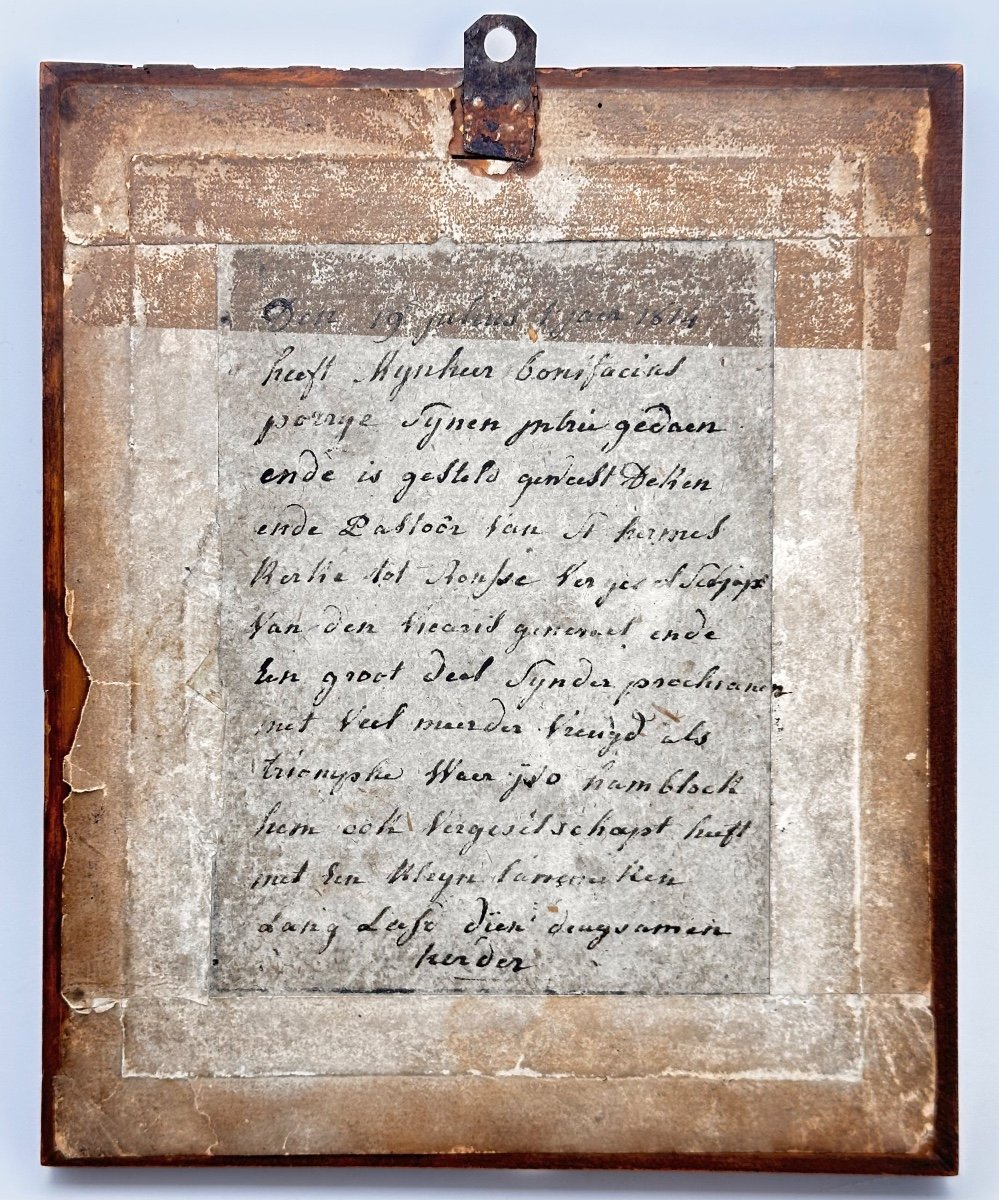 Den 19 julius t jaer 1814
heeft Mynheer bonifacius
porrye Synen intrie gedaen
ende is gesteld geweest Deken
ende Pastoor Van St hermes
Kerke tot Ronsse Vergeselschapt
Van den Vicaris generael ende
Een groot deel Synder prochianen
met Veel meerder Vreugd als
triomphe Waer hamblock
hem ook Vergeselschapt heeft
met Een Kleyn
Lang Left dien deugsamen
herder